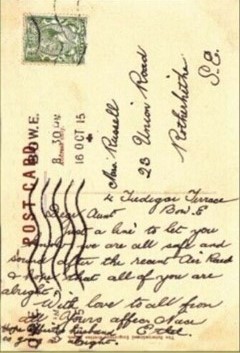 POST CARD
BOW. E.
8. 30 PM
16 OCT 15
Mrs Russell
23 Union Road
Rotherhithe
S.E.
4 Tredegar Terrace
Bow. E
Dear Aunt
Just a line to let you
know we are all safe and
sound after the recent Air Raid
& hope that all of you are
alright.
With love to all from
Yours affec Niece
Ethel
Hope husband
is alright.